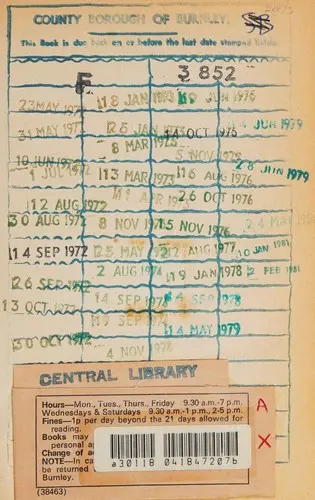 COUNTY BOROUGH OF BURNLEY.
This Book is due back on or before the last date stamped below.
F 3 852
23 MAY 1972 18 JAN 1973 19 JUN 1976
31 MAY 1972 26 JAN 14 OCT 1976 4 JUN 1979
8 MAR 1973 5 NOV
10 JUN 1972 28 JUN 1979
1 JUL 1972 13 MAR 1973 16 AUG 1976
12 AUG 1972 APR 26 OCT 1976
30 AUG 1972 8 NOV 15 NOV 1976 24
14 SEP 1972 25 MAY 12 AUG 1977 10 JAN 1981
2 AUG 1974 19 JAN 1978 2 FEB 1981
26 SEP 1972 14 SEP SEP 1978
13 OCT 1972 SEP 14 MAY 1979
30 OCT 1972 4 NOV
CENTRAL LIBRARY
Hours—Mon., Tues., Thurs., Friday 9.30 a.m.-7 p.m.
Wednesdays & Saturdays 9.30 a.m.-1 p.m., 2-5 p.m.
Fines—1p per day beyond the 21 days allowed for
reading.
Books may
personal a
Change of a
NOTE—In ca
be returned
Burnley.
(38463)
a30118 041847207b
A
X